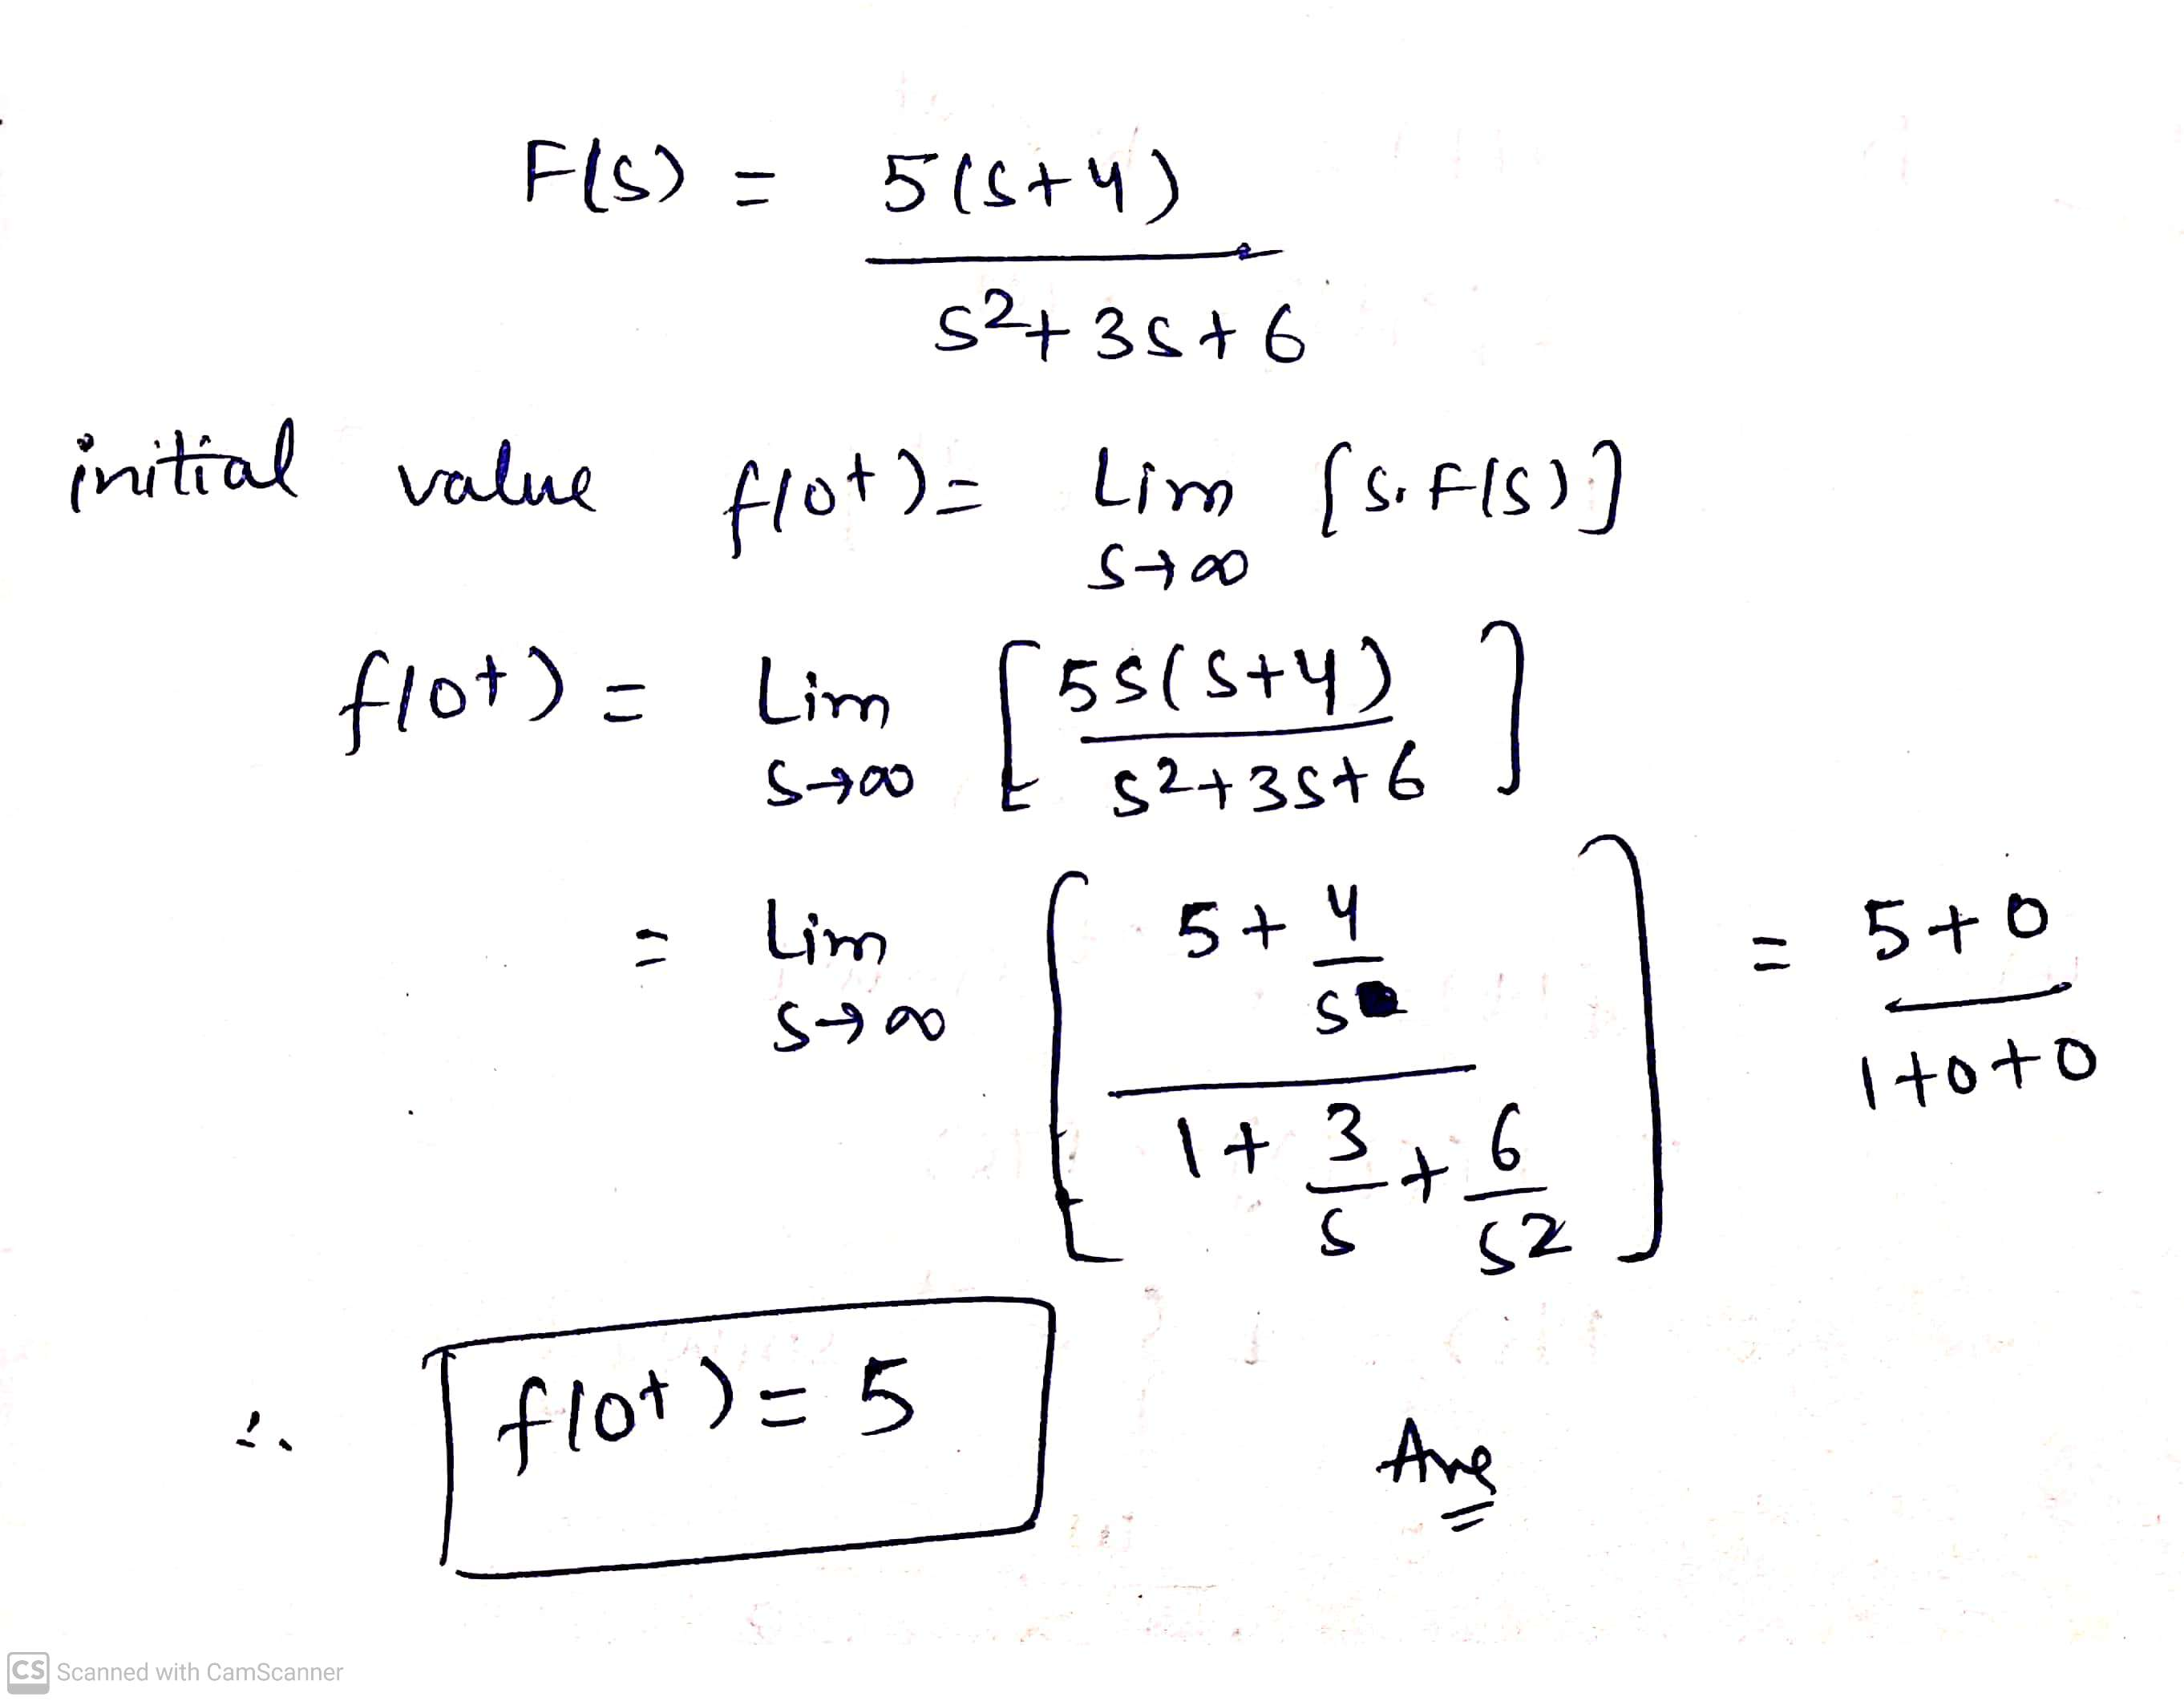 F(s) = 5(s+4)
s2+3s+6
initial value f(0+) = Lim [s.F(s)]
s→∞
f(0+) = Lim [5s(s+4)]
s→∞ s2+3s+6
= Lim [5+ 4 ] = 5+0
s→∞ s
1+0+0
1+ 3 + 6
s s2
∴ f(0+) = 5
Ans
CS Scanned with CamScanner